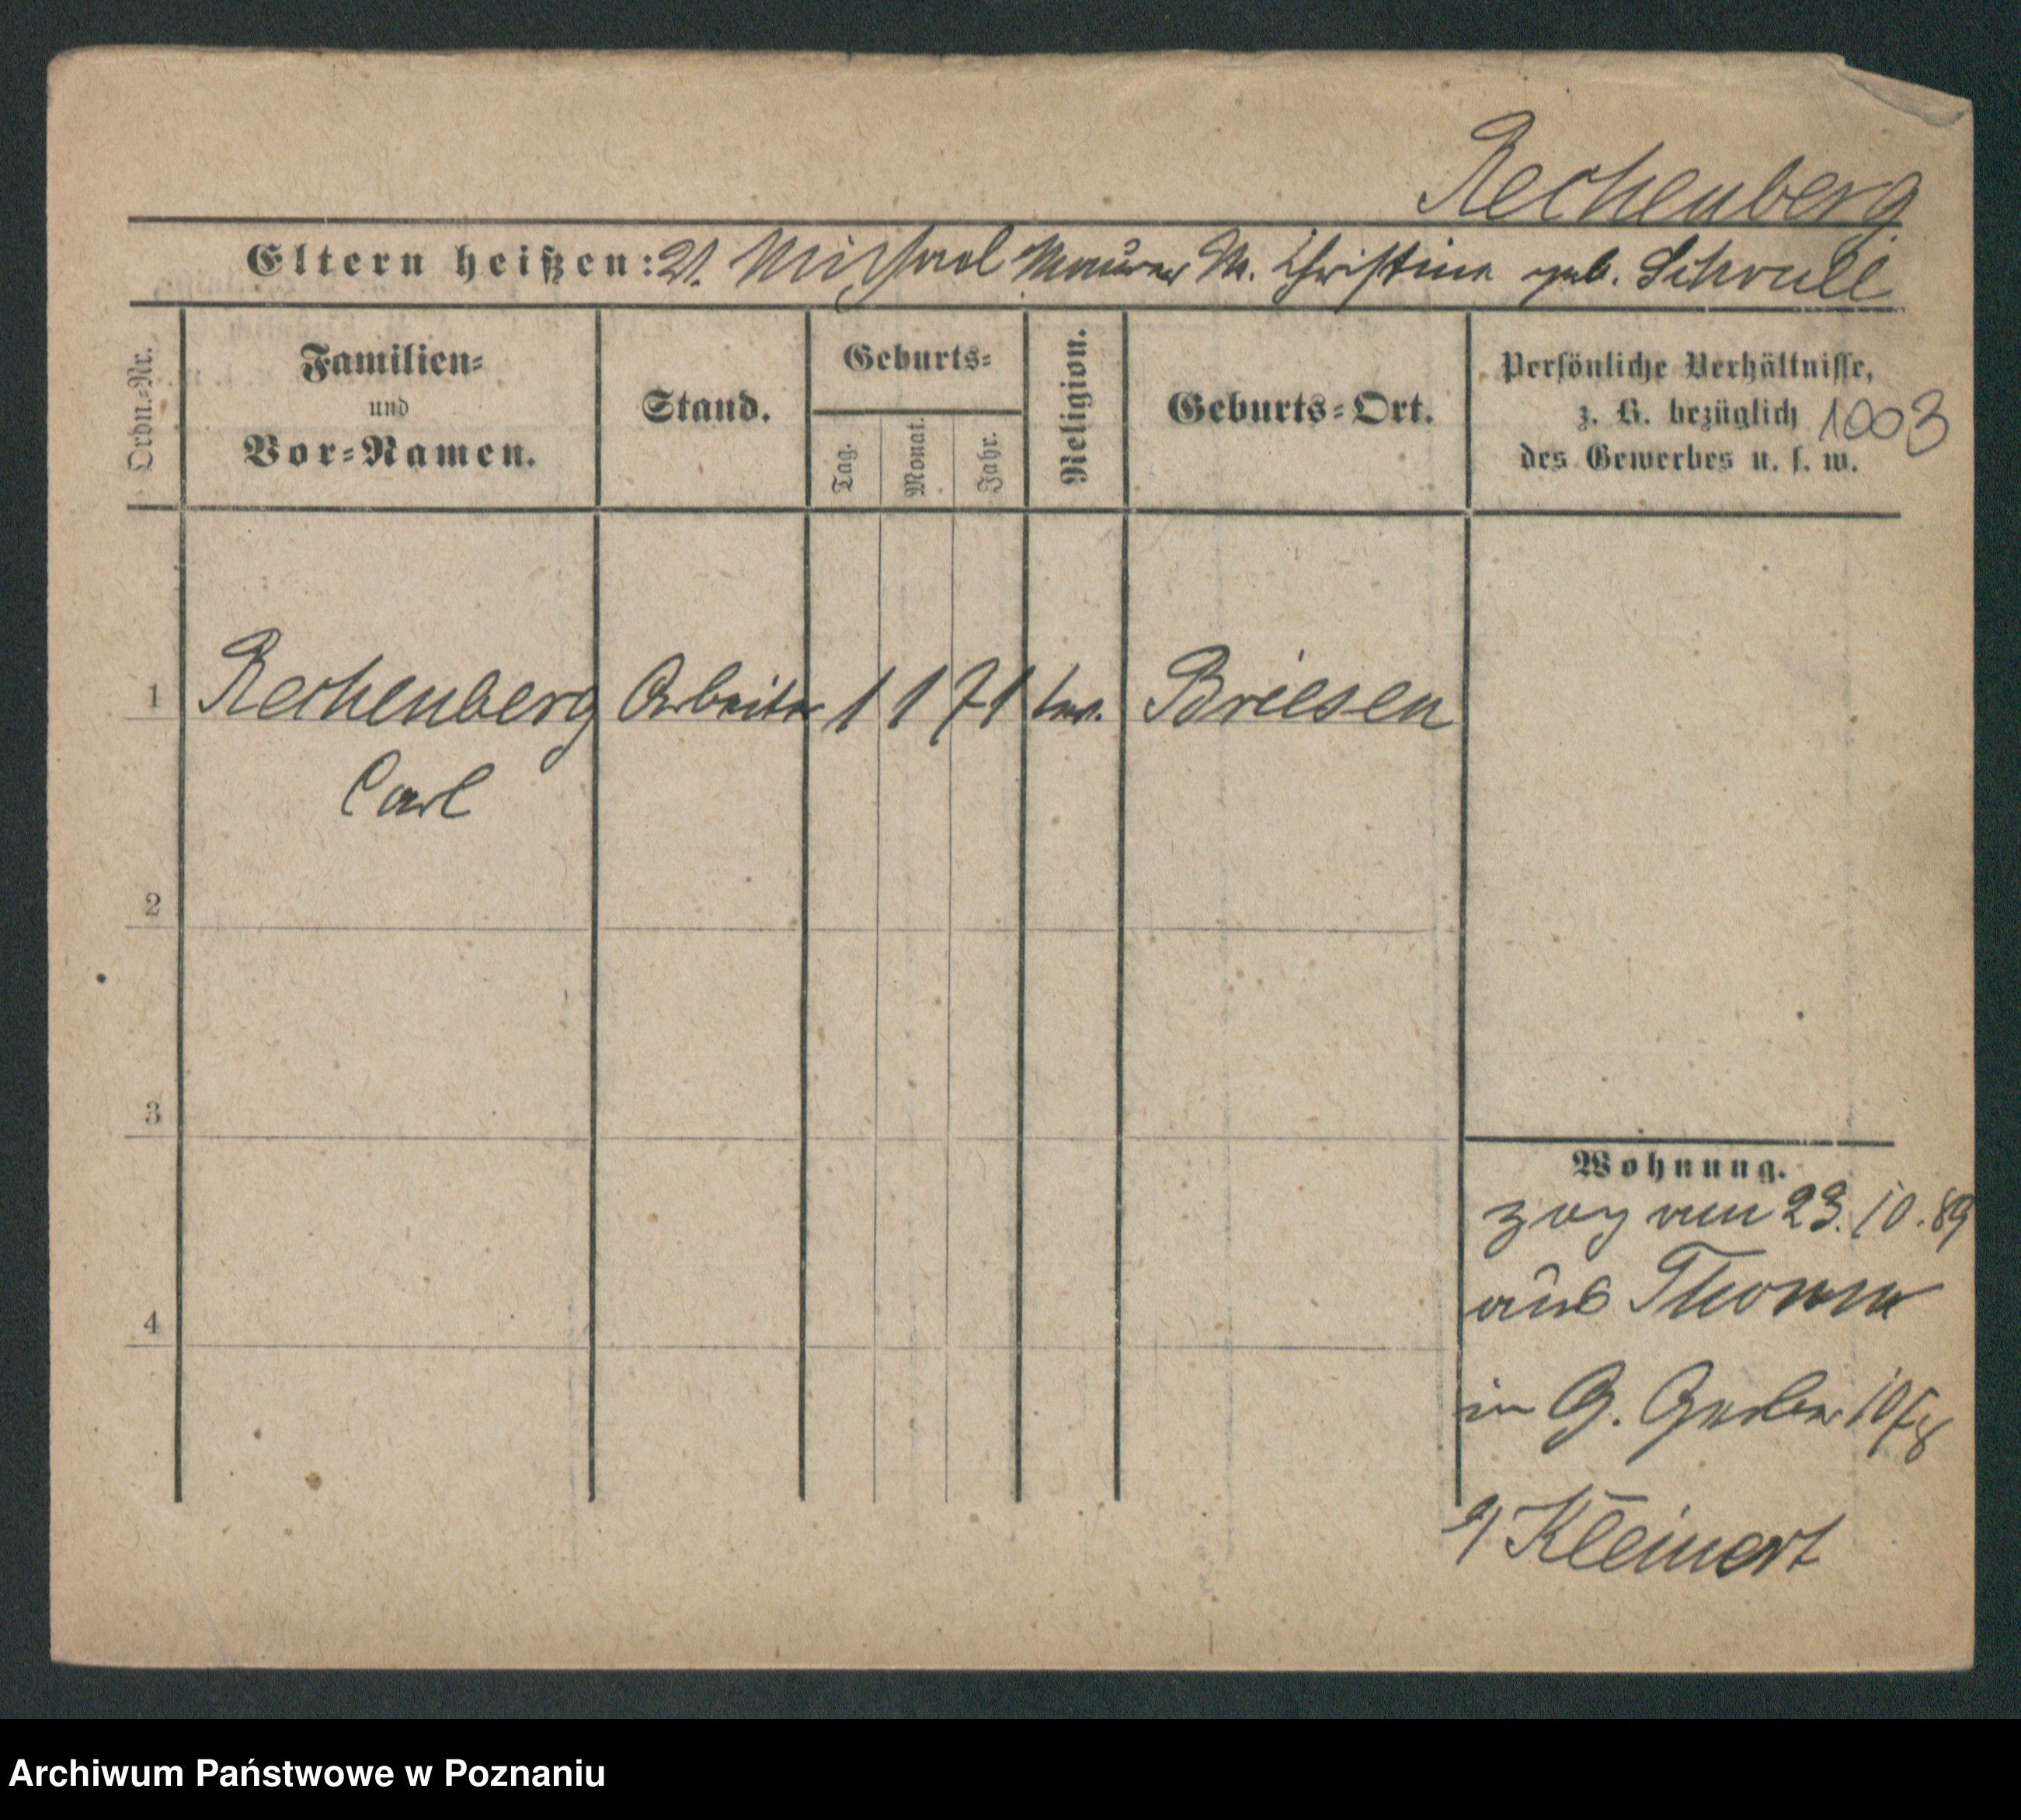 Rechenberg
Eltern heißen: V. Michael Maurer M. Christine geb. Schrull
Ordn.-Nr.
Familien-
und
Vor-Namen.
Stand.
Geburts-
Tag.
Monat.
Jahr.
Religion.
Geburts-Ort.
Persönliche Verhältnisse,
z. B. bezüglich 1003
des Gewerbes u. s. w.
1 Rechenberg Arbeiter 1 1 71 Briesen
Carl
2
3
4
Wohnung.
zog am 23.10.89
aus Thorn
in G. Gerber
b/ Kleinert
Archiwum Państwowe w Poznaniu